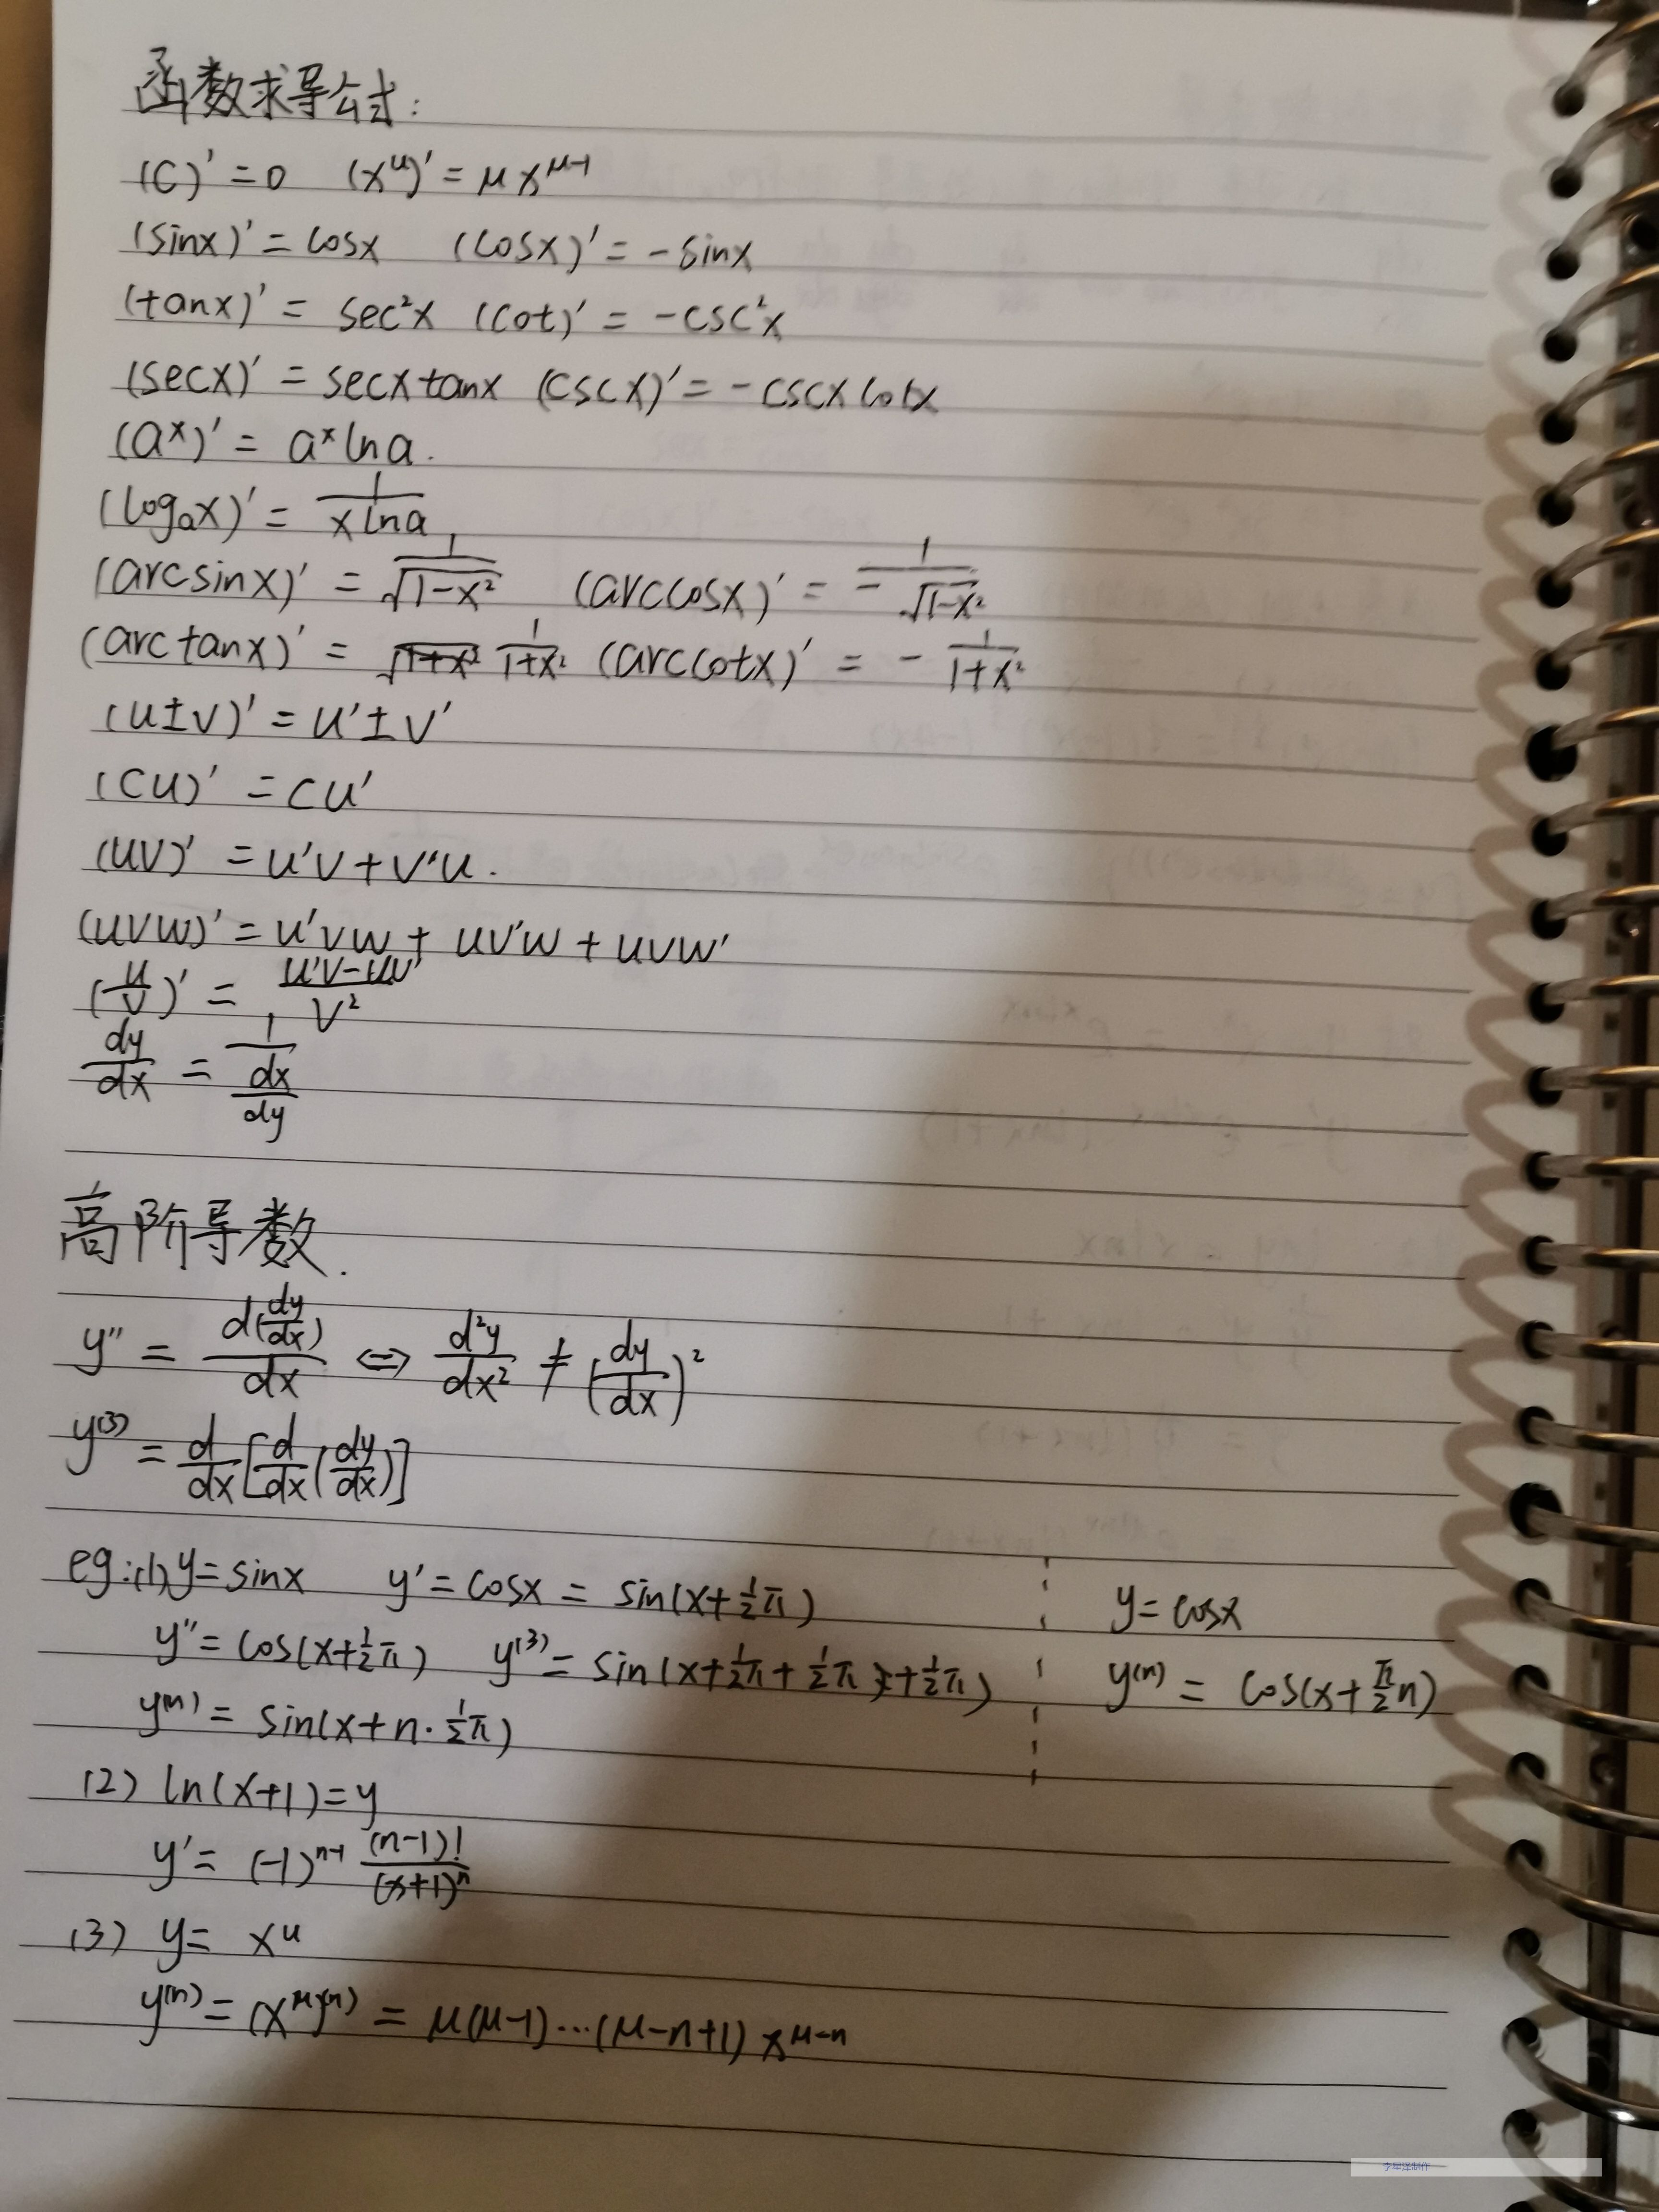 函数求导公式:
(C)' = 0  (x^u)' = μx^{μ-1}
(sinx)' = cosx  (cosx)' = -sinx
(tanx)' = sec²x  (cot)' = -csc²x
(secx)' = secxtanx  (cscx)' = -cscxcotx
(a^x)' = a^x lna.
(log_a x)' = \frac{1}{xlna}
(arcsinx)' = \frac{1}{\sqrt{1-x²}}  (arccosx)' = -\frac{1}{\sqrt{1-x²}}
(arctanx)' = \frac{1}{1+x²}  (arccotx)' = -\frac{1}{1+x²}
(u±v)' = u'±v'
(Cu)' = Cu'
(uv)' = u'v+v'u.
(uvw)' = u'vw + uv'w + uvw'
(\frac{u}{v})' = \frac{u'v-uv'}{v²}
\frac{dy}{dx} = \frac{1}{\frac{dx}{dy}}
高阶导数.
y'' = \frac{d(\frac{dy}{dx})}{dx} ⇔ \frac{d²y}{dx²} ≠ (\frac{dy}{dx})²
y^{(3)} = \frac{d}{dx}[\frac{d}{dx}(\frac{dy}{dx})]
eg:(1)y=sinx  y'=cosx = sin(x+\frac{1}{2}π)
y''=cos(x+\frac{1}{2}π)  y^{(3)}=sin(x+\frac{1}{2}π+\frac{1}{2}π+\frac{1}{2}π)
y^{(n)} = sin(x+n·\frac{1}{2}π)
y=cosx
y^{(n)} = cos(x+\frac{π}{2}n)
(2) ln(x+1)=y
y' = (-1)^{n-1} \frac{(n-1)!}{(x+1)^n}
(3) y= x^u
y^{(n)} = (x^μ)^{(n)} = μ(μ-1)···(μ-n+1) x^{μ-n}